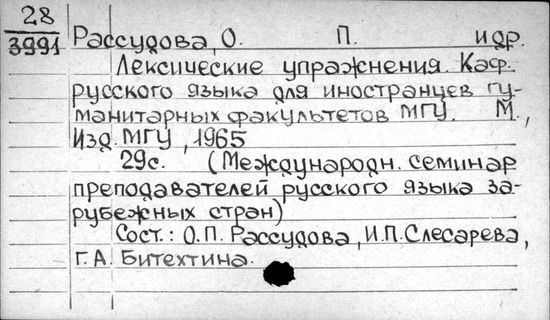 28
3991
Рассудова, О. П. и др.
Лексические упражнения. Каф.
русского языка для иностранцев гу-
манитарных факультетов МГУ. М.,
Изд. МГУ, 1965
29с. (Международн. семинар
преподавателей русского языка за-
рубежных стран)
Сост.: О.П. Рассудова, И.П. Слесарева,
Г.А. Битехтина.